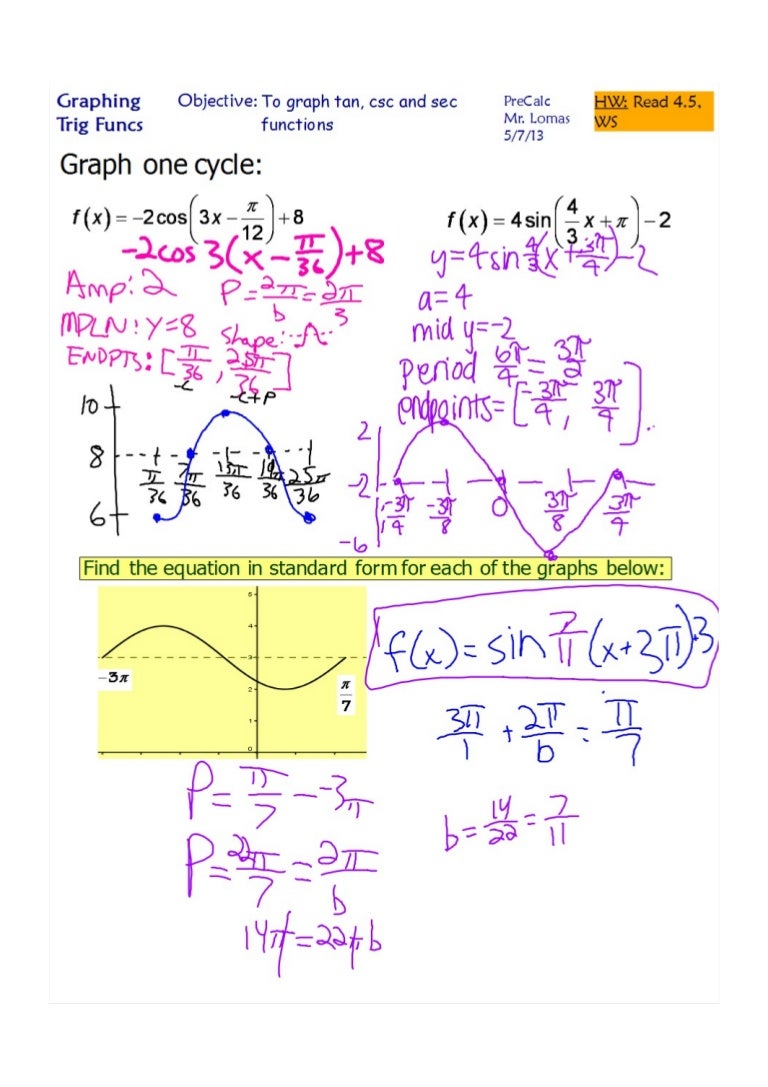 Graphing
Trig Funcs
Objective: To graph tan, csc and sec
functions
PreCalc
Mr. Lomas
5/7/13
HW: Read 4.5,
WS
Graph one cycle:
f(x) = -2cos(3x - π/12) + 8
-2cos 3(x - π/36) + 8
Amp: 2
P = 2π/b = 2π/3
MDLN: y=8
shape:
ENDPTS: [π/36, 25π/36]
10
8
6
π/36 7π/36 13π/36 19π/36 25π/36
f(x) = 4sin(4/3 x + π) - 2
y = 4sin 4/3(x + 3π/4) - 2
a = 4
mid y = -2
period 6π/4 = 3π/2
endpoints = [-3π/4, 3π/4].
2
-2
-6
-3π/4 -3π/8 0 3π/8 3π/4
Find the equation in standard form for each of the graphs below:
5
4
3
2
1
0
-3π
π/7
f(x) = sin 7/11 (x+3π)+3
3π/1 + 2π/b = π/7
b = 14/22 = 7/11
P = π/7 - -3π
P = 22π/7 = 2π/b
14π = 22πb